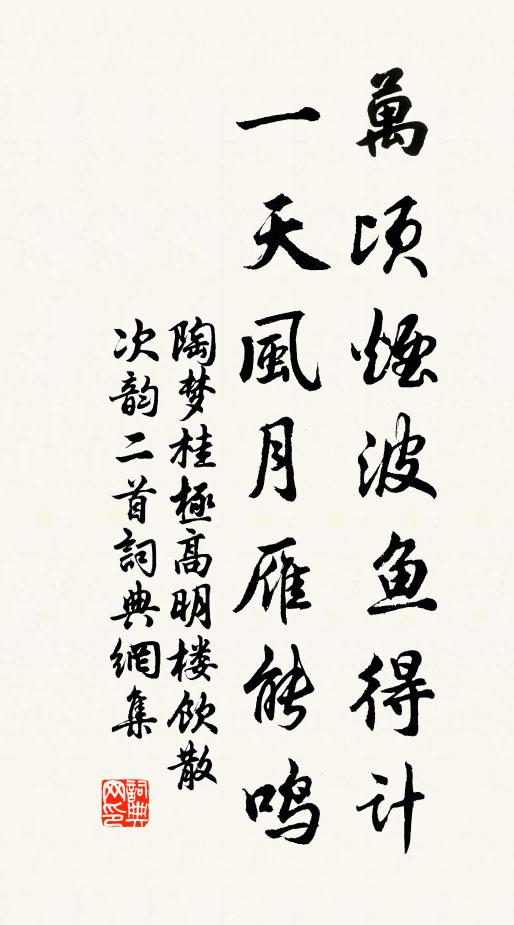 萬頃煙波鱼得计
一天風月雁能鸣
陶梦桂極高明楼饮散
次韵二首詞典網集
詞典
网印